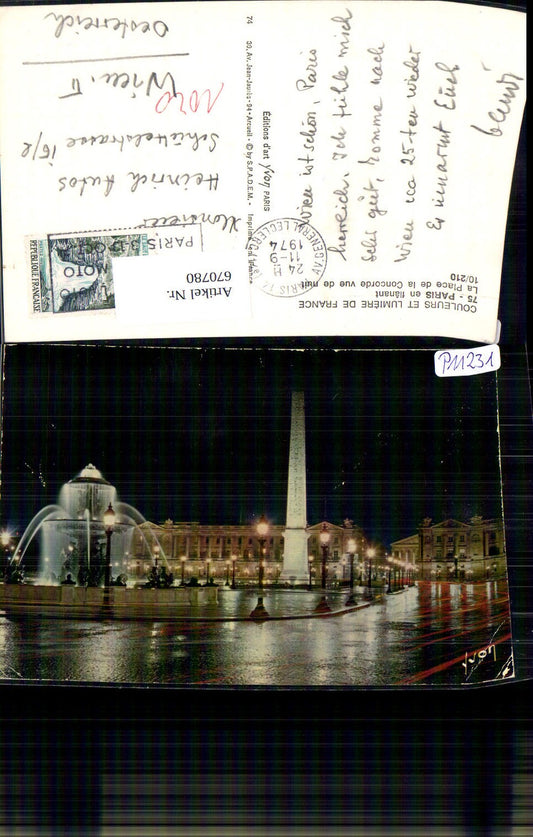 COULEURS ET LUMIÈRE DE FRANCE
75 - PARIS en flânant
La Place de la Concorde vue de nuit
10/210
ist schön, Paris
herrlich. Ich fühle mich
sehr gut, komme nach
Wien ca 25-ten wieder
Es umarmt Euch
Éditions d'art Yvon PARIS
30, Av. Jean-Jaurès - 94 - Arcueil - © by S.P.A.D.E.M. -
74
24 H
11-9
1974
AV. GENERAL LECLERC
PARIS
MOTO
REPUBLIQUE FRANÇAISE
Artikel Nr.
670780
Monsieur
Heinrich
Schüttelstrasse 15/2
1020
Wien. II
Oesterreich
P11231
Yvon